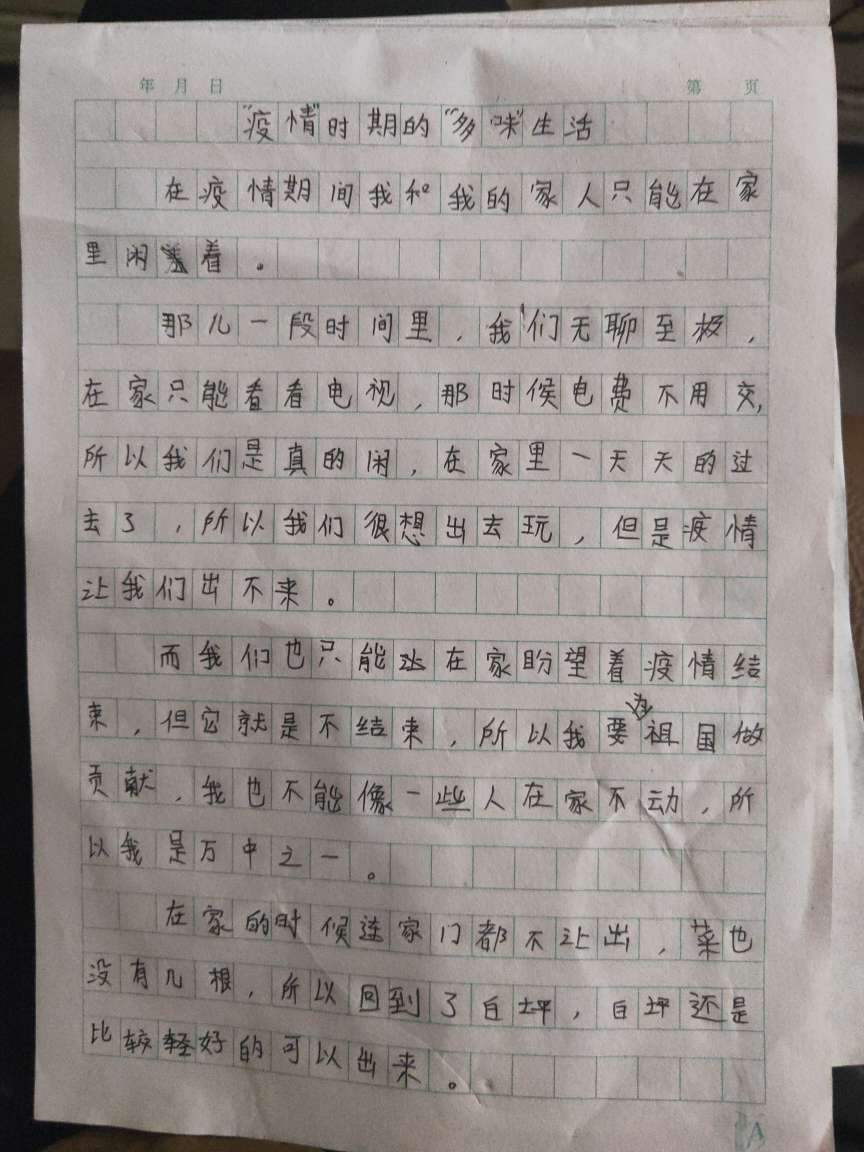 年 月 日 第 页
"疫情"时期的"多味"生活
在疫情期间我和我的家人只能在家
里闲着。
那几一段时间里，我们无聊至极，
在家只能看看电视，那时候电费不用交，
所以我们是真的闲，在家里一天天的过
去了，所以我们很想出去玩，但是疫情
让我们出不来。
而我们也只能在家盼望着疫情结
束，但它就是不结束，所以我要为祖国做
贡献，我也不能像一些人在家不动，所
以我是万中之一。
在家的时候连家门都不让出，菜也
没有几根，所以回到了白坪，白坪还是
比较轻好的可以出来。
A